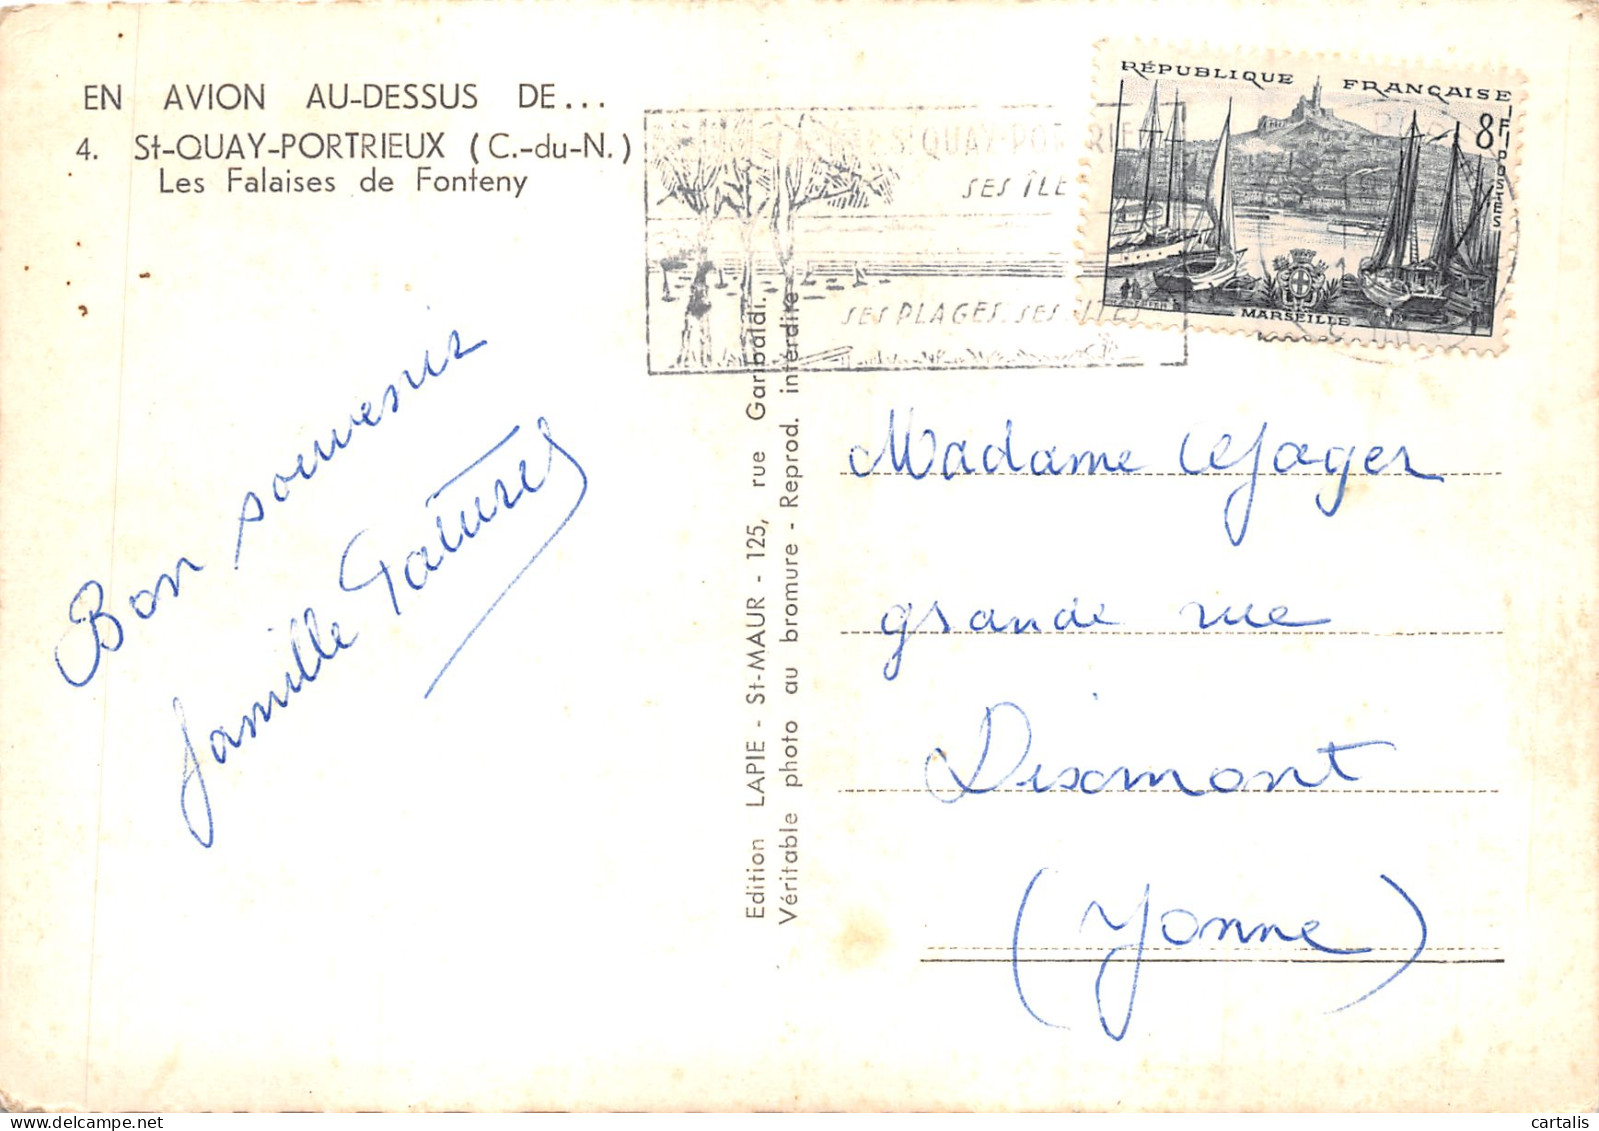 EN AVION AU-DESSUS DE...
4. St-QUAY-PORTRIEUX (C.-du-N.)
Les Falaises de Fonteny
Bon souvenir
famille
Edition LAPIE - St-MAUR - 125, rue Garibaldi.
Véritable photo au bromure - Reprod. interdite
St QUAY-PORTRIE
SES ÎLE
SES PLAGES. SES SITES
RÉPUBLIQUE FRANÇAISE
8F
POSTES
MARSEILLE
Madame Lejager
grande rue
Dixmont
(Yonne)
cartalis
www.delcampe.net